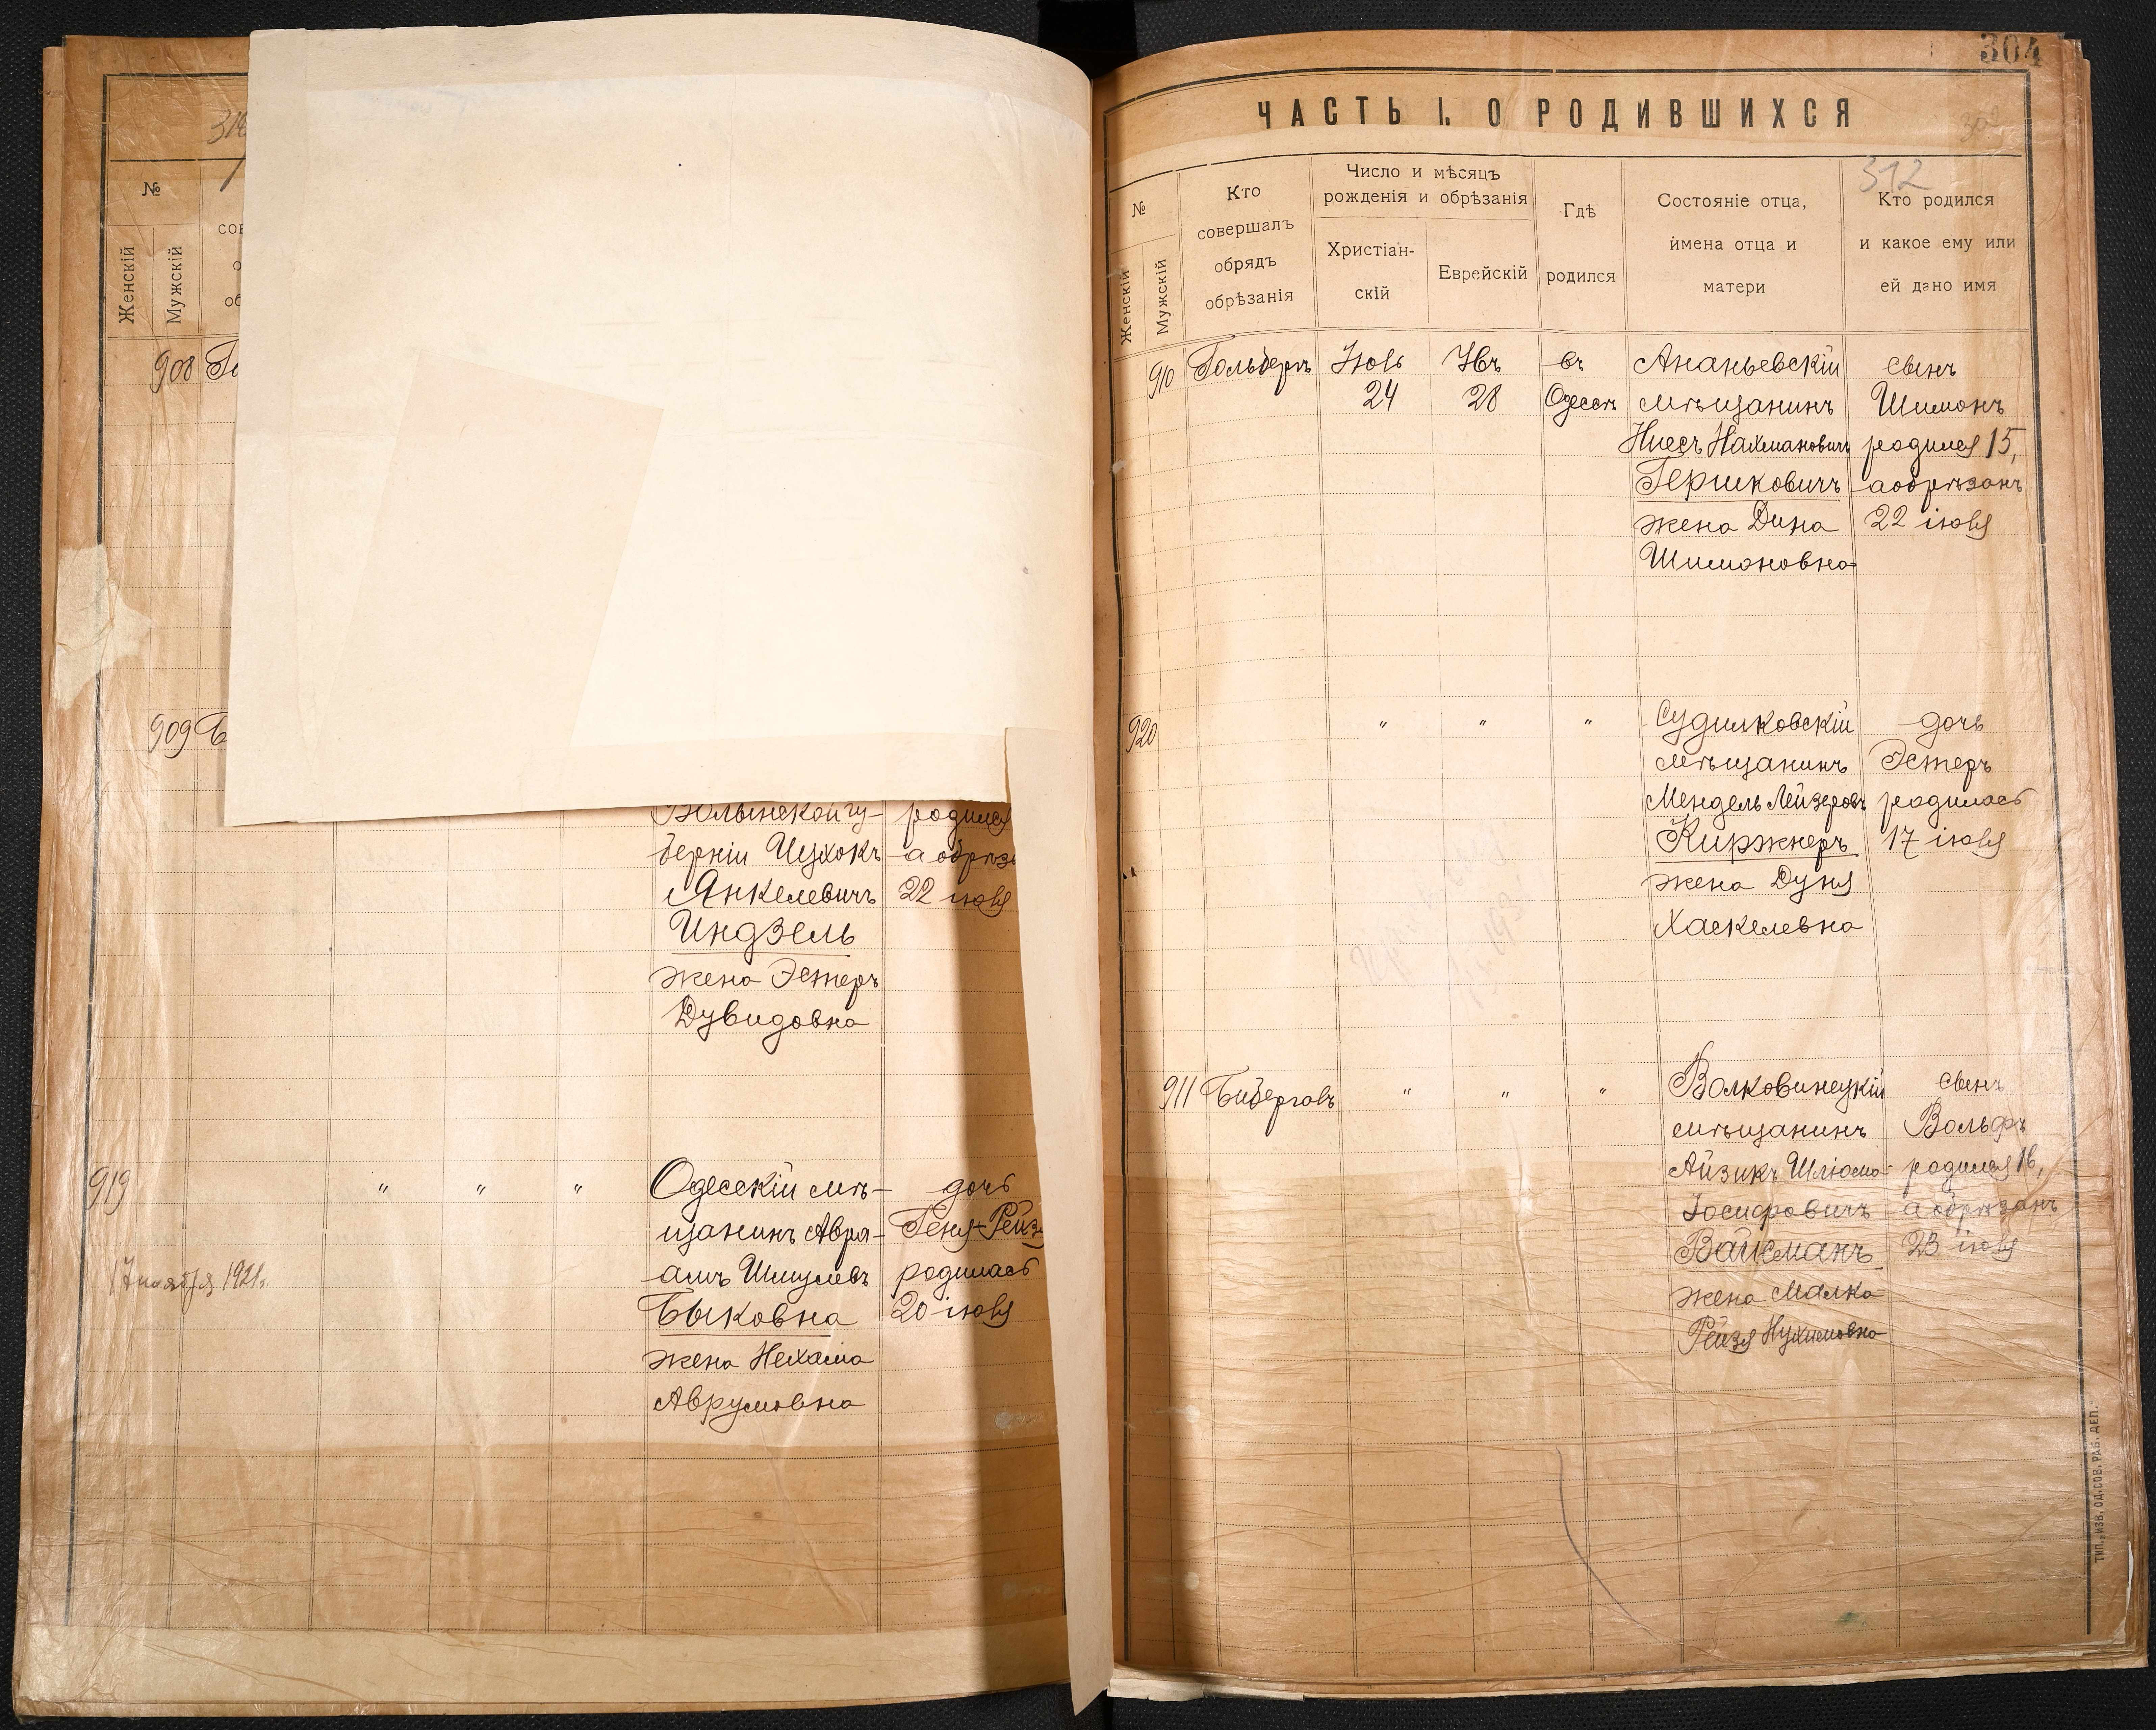 №
Женскій
Мужскій
908
909
Волынской гу-
родился
берніи Цухокъ
Янкелевичъ
22 іюля
Индзель
жена Эстеръ
Дувидовна
919
"
"
"
Одесскій мѣ-
дочь
щанинъ Авра-
Геня-Рейзя
амъ Шмулевъ
родилась
17 ноября 1921г.
Быковна
20 іюля
жена Нехама
Аврумовна
304
ЧАСТЬ I. О РОДИВШИХСЯ
312
№
Женскій
Мужскій
Кто
совершалъ
обрядъ
обрѣзанія
Число и мѣсяцъ
рожденія и обрѣзанія
Христіан-
скій
Еврейскій
Гдѣ
родился
Состояніе отца,
имена отца и
матери
Кто родился
и какое ему или
ей дано имя
910
Гольберъ
Іюль
24
Ивъ
28
въ
Одессѣ
Ананьевскій
мѣщанинъ
Ниссъ Нахмановичъ
Гершковичъ
жена Дина
Шимоновна
сынъ
Шимонъ
родился 15,
а обрѣзанъ
22 іюля
920
"
"
"
Судилковскій
мѣщанинъ
Мендель Лейзеровъ
Киржнеръ
жена Дуня
Хаскелевна
дочь
Эстеръ
родилась
17 іюля
911
Бибергалъ
"
"
"
Волковинецкій
мѣщанинъ
Айзикъ Шліома-
Іосифовичъ
Вайсманъ
жена Малка-
Рейзя Нухимовна
сынъ
Вольфъ
родился 16,
а обрѣзанъ
23 іюля
ТИП. „ИЗВ. ОД. СОВ. РАБ. ДЕП."